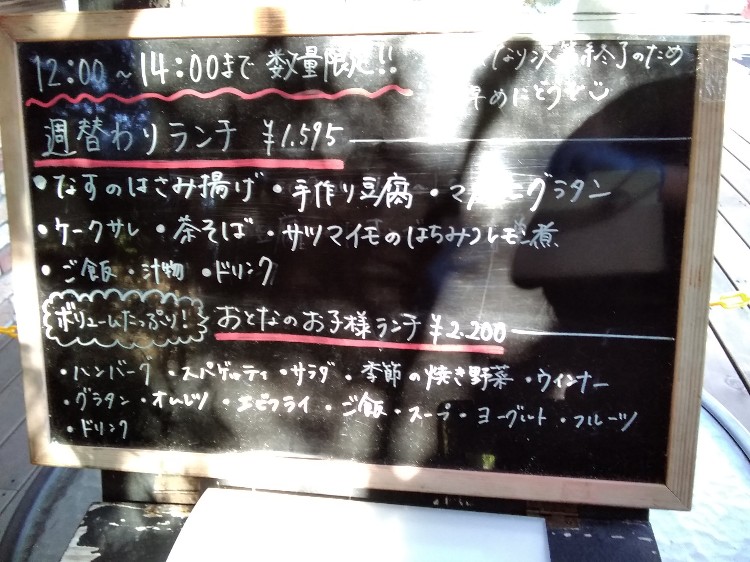 12:00～14:00まで 数量限定!!
なり次第終了のため
早めにどうぞ
週替わりランチ ¥1.595
・なすのはさみ揚げ・手作り豆腐・マカロニグラタン
・ケークサレ・茶そば・サツマイモのはちみつレモン煮
・ご飯・汁物・ドリンク
ボリュームたっぷり! おとなのお子様ランチ ¥2.200
・ハンバーグ・スパゲッティ・サラダ・季節の焼き野菜・ウインナー
・グラタン・オムレツ・エビフライ・ご飯・スープ・ヨーグルト・フルーツ
・ドリンク